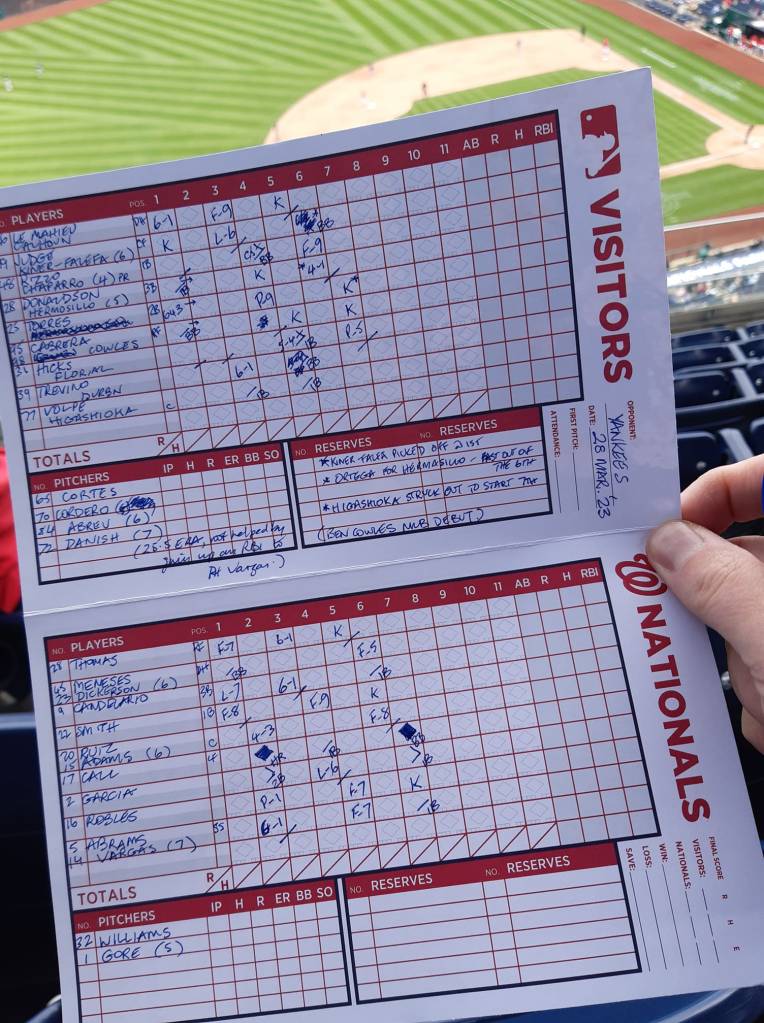 VISITORS
OPPONENT: YANKEES
DATE: 28 MAR. '23
FIRST PITCH:
ATTENDANCE:
PLAYERS POS. 1 2 3 4 5 6 7 8 9 10 11 AB R H RBI
LE MAHIEU 6-1 F-9 K
CALHOUN
JUDGE K L-6 BB
KINER-FALEFA (6) F-9
RIZZO BB K *4-1
CHAPARRO (4) PR
28 DONALDSON 643 P-9 K*
HERMOSILLO (5)
25 TORRES BB K P-5
CABRERA
COWLES
HICKS 6-1 BB
FLORIAL
39 TREVINO 1B 1B
DURBN
77 VOLPE
HIGASHIOKA C
TOTALS R H
NO. PITCHERS IP H R ER BB SO
65 CORTES
70 CORDERO
84 ABREU (6)
72 DANISH (7)
(26.5 ERA, not helped by
giving up one RBI to
PH Vargas.)
NO. RESERVES NO. RESERVES
*KINER-FALEFA PICKED OFF 2 1ST
* ORTEGA FOR HERMASILLO - OUT OF
THE 6TH
*HIGASHIOKA STRUCK OUT TO START 7TH
(BEN COWLES MLB DEBUT)
NATIONALS
NO. PLAYERS POS. 1 2 3 4 5 6 7 8 9 10 11 AB R H RBI
28 THOMAS RF F-7 6-1 K F-5
45 MENESES BB 1B
23 DICKERSON (6)
9 CANDELARIO L-7 6-1 K
22 SMITH 1B F-8 F-9 F-8
20 RUIZ C 4-3
15 ADAMS (6)
17 CALL HR 1B BB
2 GARCIA 2B L-6 1B
16 ROBLES P-1 F-7 K
5 ABRAMS SS 6-1 F-7 1B
14 VARGAS (7)
TOTALS R H
NO. PITCHERS IP H R ER BB SO
32 WILLIAMS
1 GORE (5)
NO. RESERVES NO. RESERVES
FINAL SCORE R H E
VISITORS:
NATIONALS:
WIN:
LOSS:
SAVE: